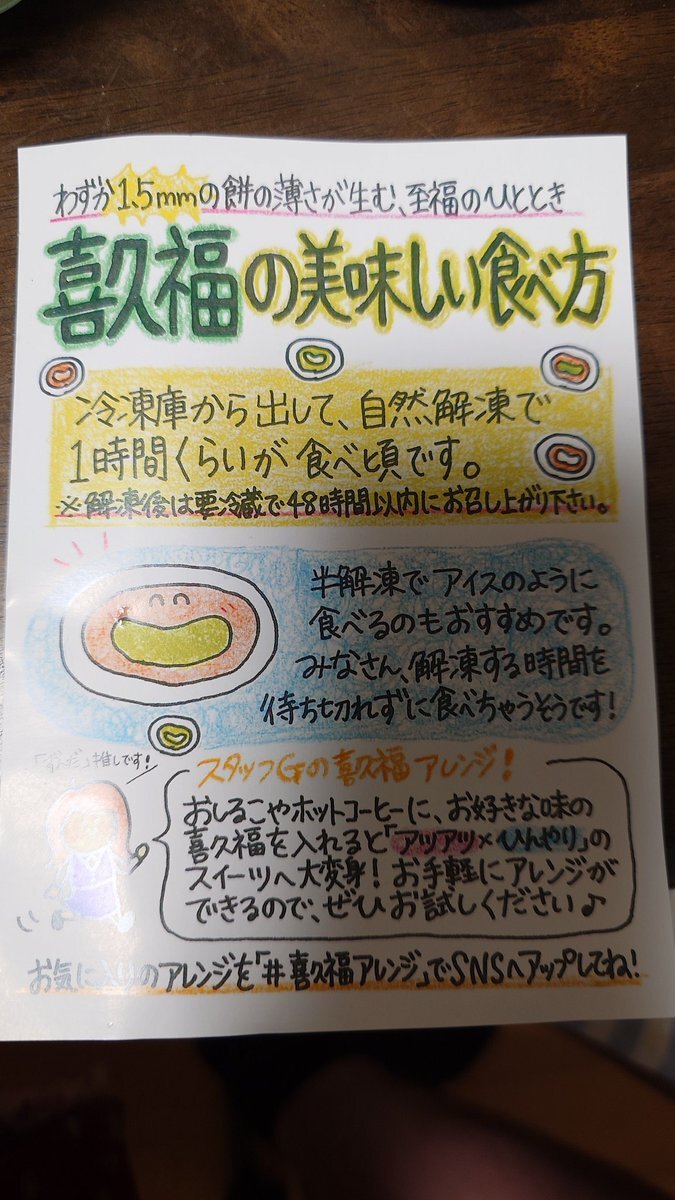 わずか1.5mmの餅の薄さが生む、至福のひととき
喜久福の美味しい食べ方
冷凍庫から出して、自然解凍で
1時間くらいが食べ頃です。
※解凍後は要冷蔵で48時間以内にお召し上がり下さい。
半解凍でアイスのように
食べるのもおすすめです。
みなさん、解凍する時間を
待ち切れずに食べちゃうそうです!
「ずんだ」推しです!
スタッフGの喜久福アレンジ!
おしるこやホットコーヒーに、お好きな味の
喜久福を入れると「アツアツ×ひんやり」の
スイーツへ大変身!お手軽にアレンジが
できるので、ぜひお試しください♪
お気に入りのアレンジを「#喜久福アレンジ」でSNSへアップしてね!